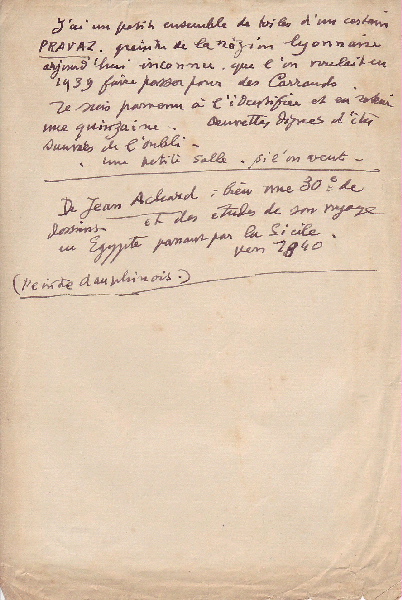 J'ai un petit ensemble de toiles d'un certain
PRAVAZ. peintre de la région lyonnaise
aujourd'hui inconnu, que l'on voulait en
1939 faire passer pour des Carrands.
Je suis parvenu à l'identifier et en
une quinzaine. Oeuvrettes dignes d'être
sauvées de l'oubli.
une petite salle. si l'on veut.
De Jean Achard, bien une 30e de
dessins et des études de son voyage
en Egypte passant par la Sicile.
vers 1840
(Peintre dauphinois.)